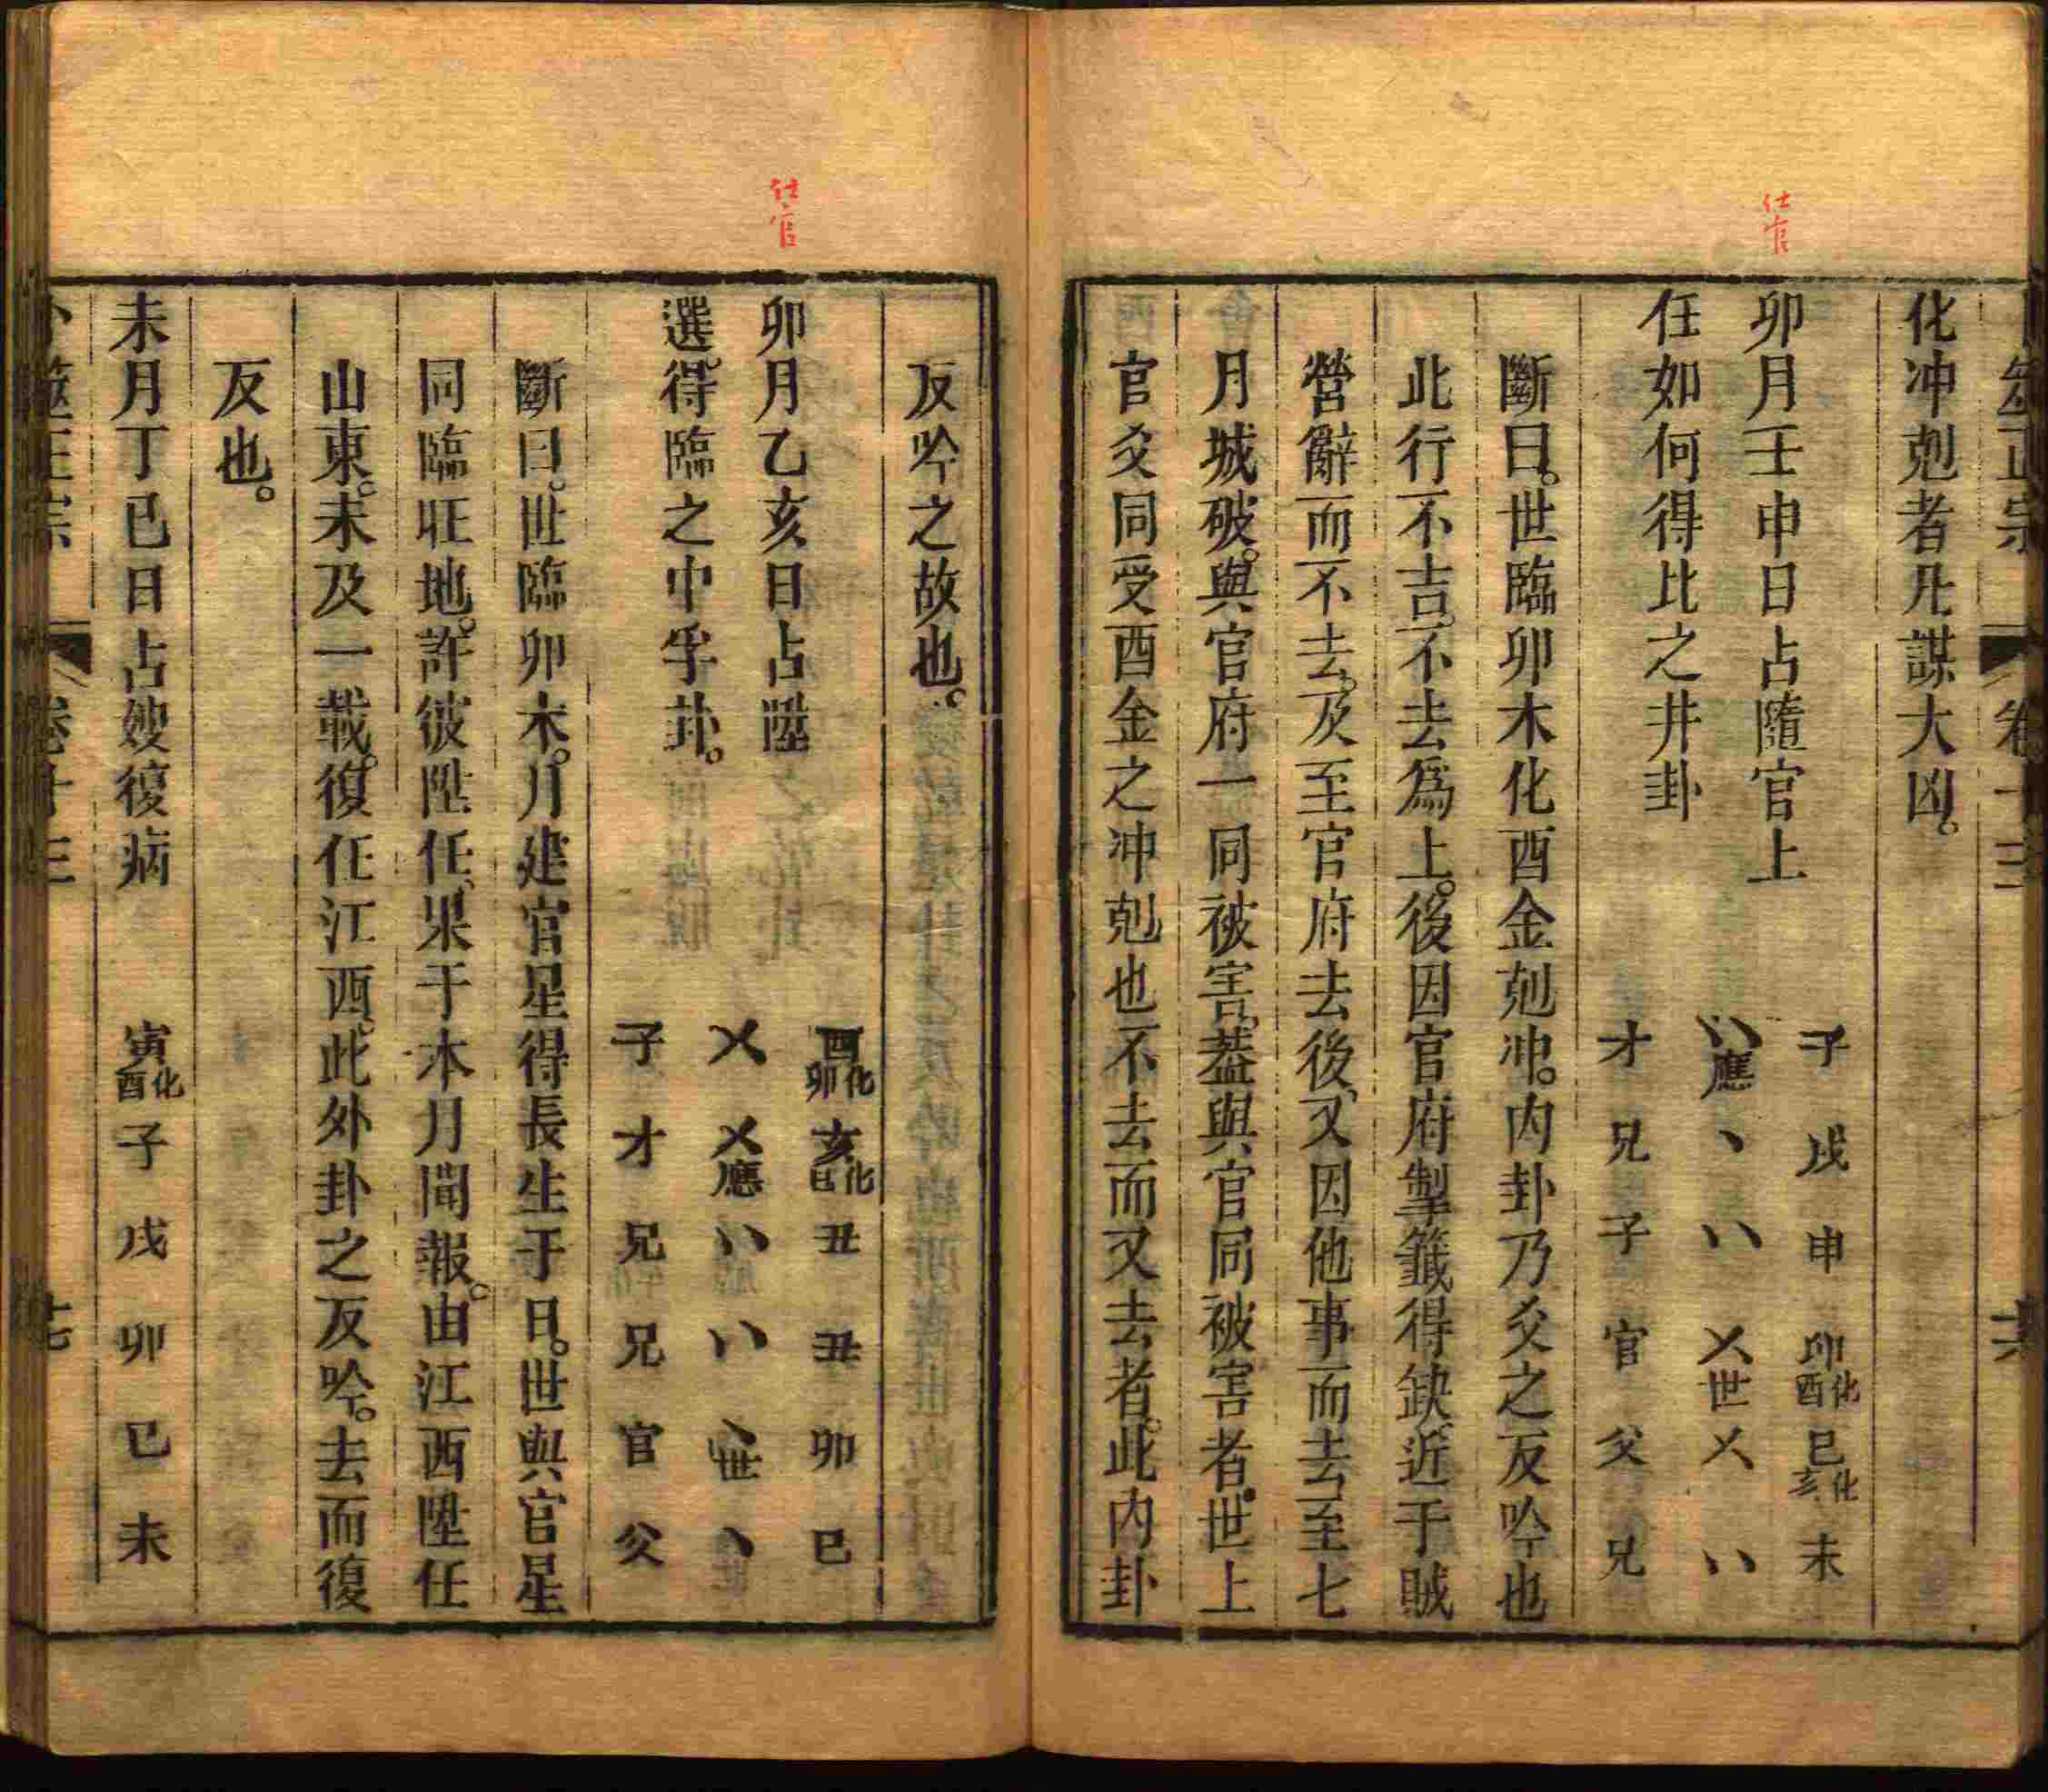 卜筮正宗 卷十三 十六
化冲剋者凡謀大凶。
仕官
卯月壬申日占隨官上
任如何得比之井卦
子 戌 申 卯化酉 巳化亥 未
〃應 、 〃 㐅世 㐅 〃
才 兄 子 官 父 兄
斷曰。世臨卯木化酉金剋冲。内卦乃爻之反吟也
此行不吉。不去爲上。後因官府掣籤得缺。近于賊
營辭而不去。及至官府去後、又因他事而去至七
月城破。與官府一同被害。葢與官同被害者。世上
官爻同受酉金之冲剋也不去而又去者。此内卦
反吟之故也。
仕官
卯月乙亥日占陞
選。得臨之中孚卦。
酉化卯 亥化巳 丑 丑 卯 巳
㐅 㐅應 〃 〃 、世 、
子 才 兄 兄 官 父
斷曰。世臨卯木。月建官星得長生于日。世與官星
同臨旺地。許彼陞任、果于本月聞報。由江西陞任
山東。未及一載。復任江西。此外卦之反吟。去而復
反也。
未月丁巳日占嫂復病
寅化酉 子 戌 卯 巳 未
卜筮正宗 卷十三 十七